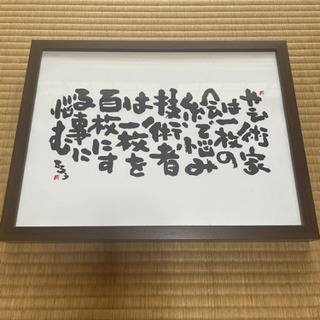 芸術家
は一枚の
絵で悩み
技術者
は一枚を
百枚にす
る事に
悩む